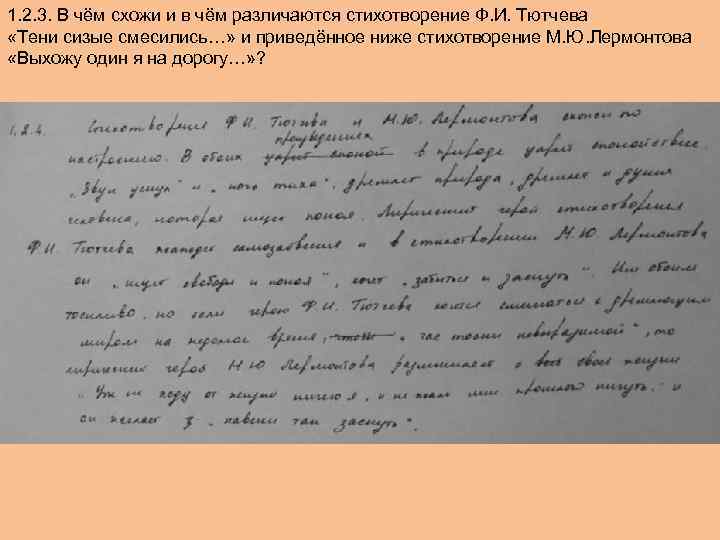 1. 2. 3. В чём схожи и в чём различаются стихотворение Ф. И. Тютчева
«Тени сизые смесились…» и приведённое ниже стихотворение М. Ю. Лермонтова
«Выхожу один я на дорогу…» ?
1.2.4. Стихотворения Ф.И. Тютчева и М.Ю. Лермонтова схожи по
произведениях
настроению. В обоих в природе царит спокойствие.
„Звук уснул" и „ночь тиха", дремлет природа, дремлет и душа
человека, которая ищет покоя. Лирический герой стихотворения
Ф.И. Тютчева самозабвения и в стихотворении М.Ю. Лермонтова
он „ищет свободы и покоя", хочет „забыться и заснуть". Им обоим
тоскливо, но если герою Ф.И. Тютчева хочется смешаться с дремлющим
миром на время, „час тоски невыразимой", то
лирический герой М.Ю Лермонтова размышляет о всей своей жизни
„Уж не жду от жизни ничего я, и не жаль мне прошлого ничуть", и
он желает „навеки так заснуть".